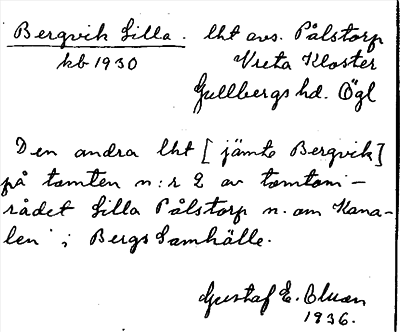 Bergvik Lilla. lht avs. Pålstorp
kb 1930 Vreta Kloster
Gullbergs hd. Ögl
Den andra lht [jämte Bergvik]
på tomten n:r 2 av tomtom-
rådet Lilla Pålstorp n. om Kana-
len i Bergs Samhälle.
Gustaf E.
1936.